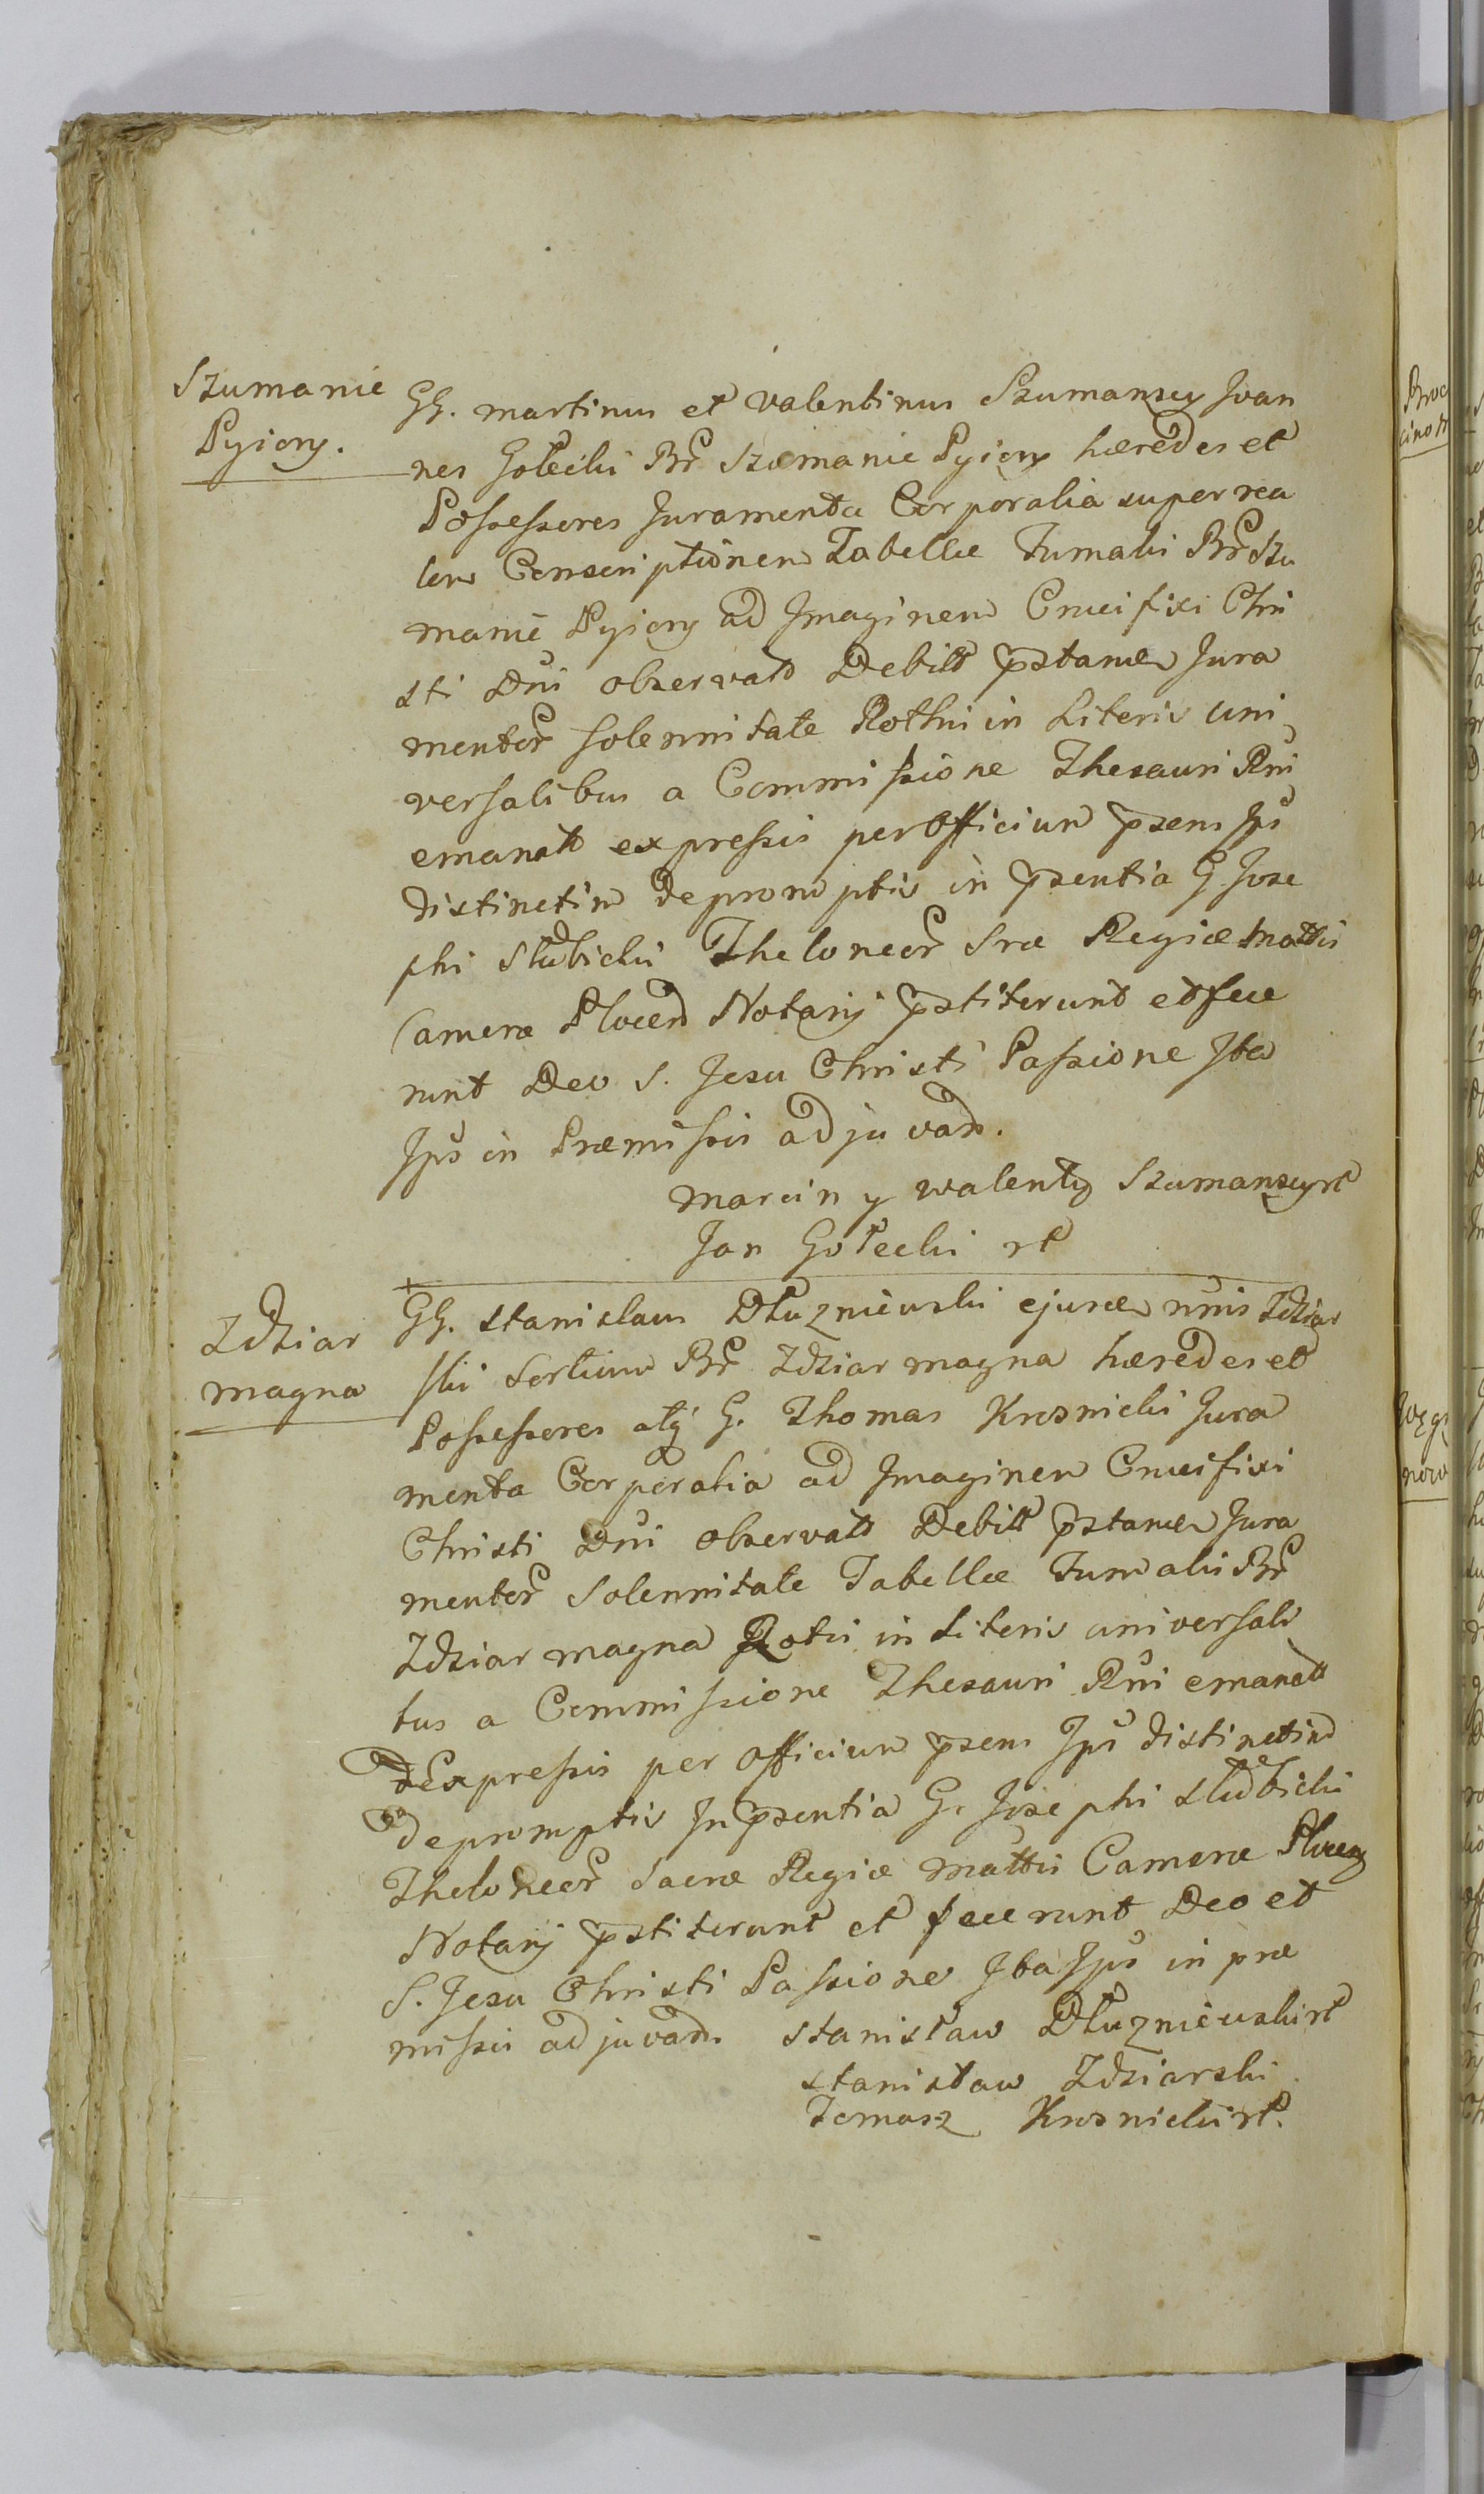 Szumanie
Pyiory.
GG. Martinus et Valentinus Szumanscy Joan
nes Gołecki Br̃ Szumanie Pyiory hæredes et
Possessores Juramenta Corporalia super rea
lem Conscriptionem Tabellæ Fumalis Br̃ Szu
manie Pyiory ad Imaginem Crucifixi Chri
sti Dni observatt Debitt p̃standæ Jura
mentor̃ solennitate Rothis in Literis uni
versalibus a Commissione Thesauri Rni
emanatt expressis per Officium p̃sens Ips
distinctim depromptis in p̃sentia G. Jose
phi Słubicki Theloneor̃ Sræ Regiæ Mattis
Cameræ Plocen Notarÿ p̃stiterunt et fece
runt Deo S. Jesu Christi Passione Ita
Ips in Præmissis adjuvan.
Marcin y Walenty Szumanscy rt
Jan Gołecki rt
Zdziar
magna
GG. Stanislaus Dłuzniewski ejusd nnis Zdziar
ski Sortium Br̃ Zdziar magna hæredes et
Possessores atq́ G. Thomas Krosnicki Jura
menta Corporalia ad Imaginem Crucifixi
Christi Dni observatt Debitt p̃standæ Jura
mentor̃ Solennitate Tabellæ Fumalis Br̃
Zdziar magna Rotis in Literis universali
bus a Commissione Thesauri Rni emanatt
Expressis per Officium p̃sens Ips distinctim
depromptis In p̃sentia G. Josephi Słubicki
Theloneor̃ Sacræ Regiæ Mattis Cameræ Plocen
Notarÿ p̃stiterunt et fecerunt Deo et
S. Jesu Christi Passione Ita Ips in præ
missis adjuvan. Stanisław Dłuzniewski rt
Stanisław Zdziarski
Tomasz Krosnicki rt.